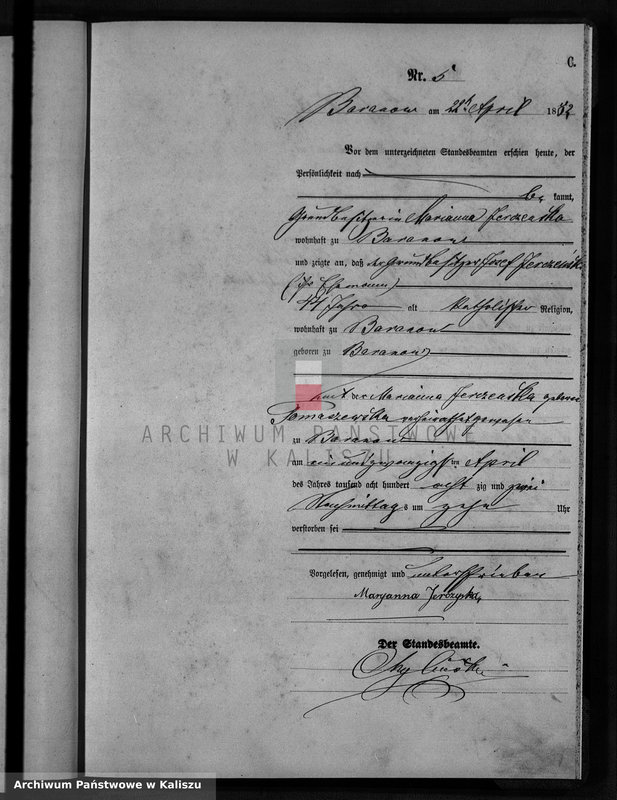 C.
Nr. 5
Baranow am 22ten April 1882
Vor dem unterzeichneten Standesbeamten erschien heute, der
Persönlichkeit nach
be kannt,
Grundbesitzerin Marianna Jerczewska
wohnhaft zu Baranow
und zeigte an, daß der Grundbesitzer Josef Jerczewski
(ihr Ehemann)
44 Jahre alt katholischer Religion,
wohnhaft zu Baranow
geboren zu Baranow
mit der Marianna Jerczewska geborene
Tomaszewska verheirathet gewesen
zu Baranow
am ein und zwanzigsten April
des Jahres tausend acht hundert acht zig und zwei
Nachmittags um zehn Uhr
verstorben sei
Vorgelesen, genehmigt und unterschrieben
Maryanna
Der Standesbeamte.
ARCHIWUM PAŃSTWOWE
W KALISZU
Archiwum Państwowe w Kaliszu